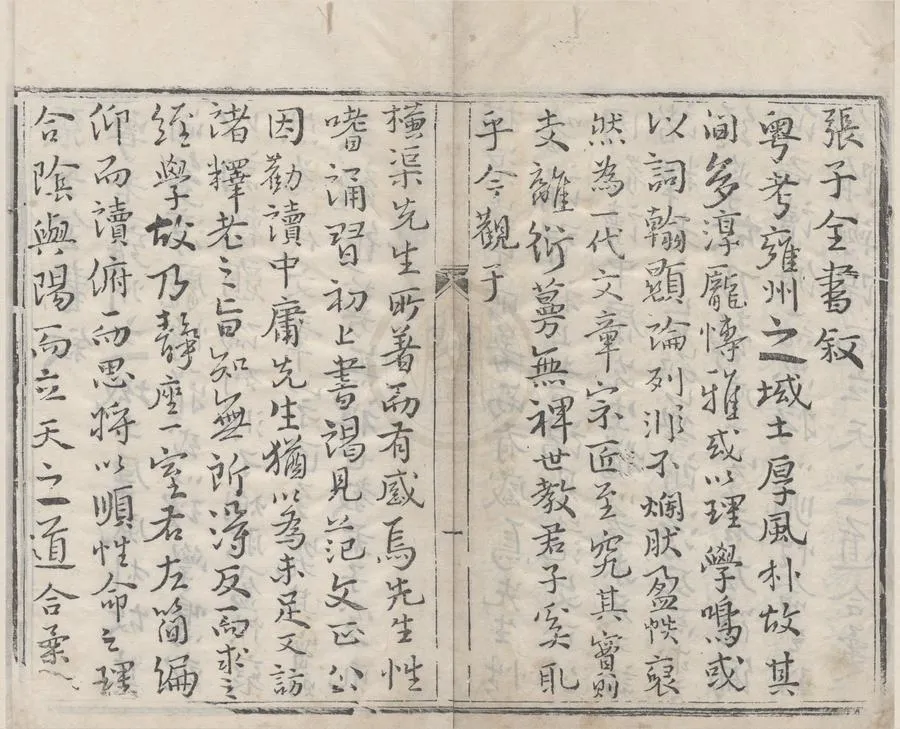 張子全書叙
粤考雍州之域土厚風朴故其
間多淳龐愽雅或以理學鳴或
以詞翰顯論列非不爛肰盈帙裒
然為一代文章宗匠至究其實則
支離衍蔓無裨世教君子奚取
乎今觀子
橫渠先生所著而有感焉先生性
嗜誦習初上書謁見范文正公
因勸讀中庸先生猶以為未足又訪
諸釋老之旨知無所得反而求之
經學故乃靜座一室右左簡編
仰而讀俯而思將以順性命之理
合陰與陽而立天之道合柔
一